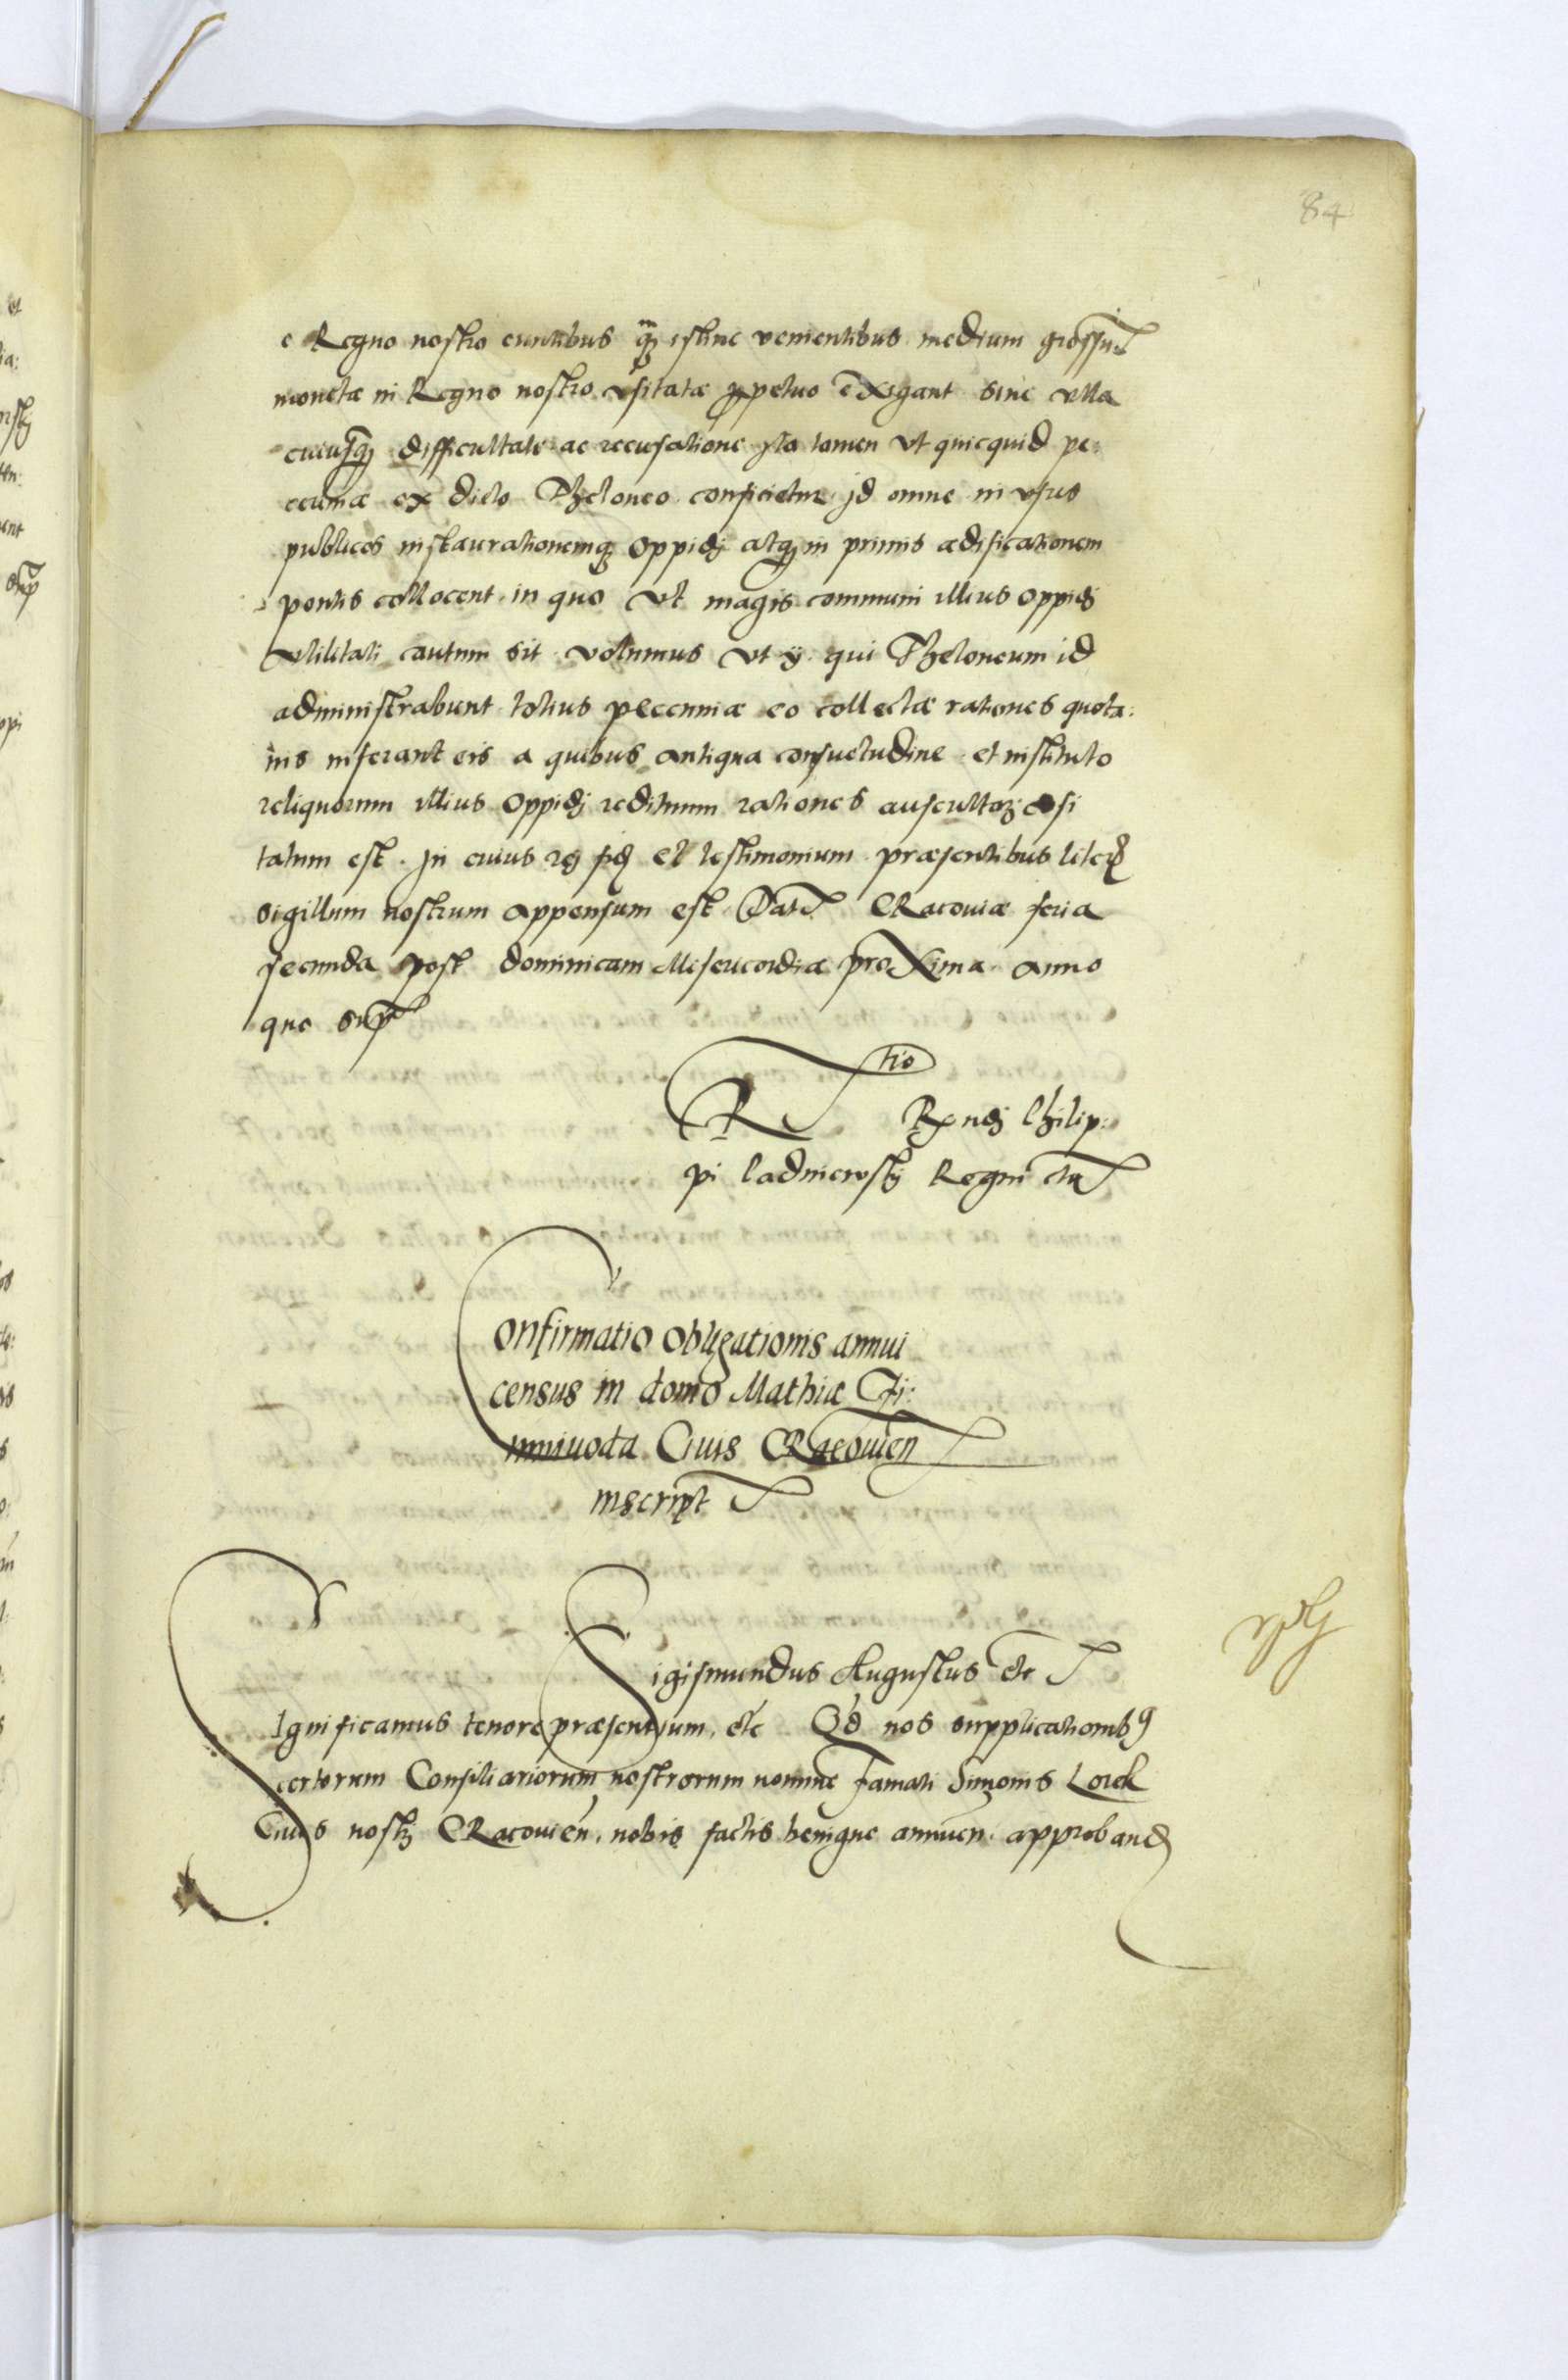 84
e Regno nostro euntibus q̃m istinc venientibus medium grossum
monetæ in Regno nostro vsitatæ ꝑpetuo exigant sine vlla
cuiusq̃ difficultate ac recusatione yta tamen vt quicquid pe:
cuniæ ex dicto Theloneo conficietur jd omne in vsus
publicos instaurationemq̃ oppidj atq̃ in primis ædificationem
pontis collocent. in quo vt magis communi illius oppidj
vtilitati cautum sit volumus vt ÿ qui Theloneum id
administrabunt totius pecuniæ eo collectæ rationes quota:
nis inferant eis a quibus antiqua consuetudine et instituto
reliquorum illius oppidj redituum rationes auscultarj vsi
tatum est. In cuius rej fidẽ et testimonium præsentibus literis
sigillum nostrum appensum est. Dat Cracouiæ feria
secunda post dominicam Misericordiæ proxima anno
quo supra
Rtio Rxndj Philip:
pi Padniewskj Regni etc
Confirmatio obligationis annui
census in domo Mathiæ
Ciuis Cracouien
inscript
Sigismundus Augustus etc
Significamus tenore præsentium, etc Qd nos supplicationibꝰ
certorum Consiliariorum nostrorum nomine famati Simonis Lorek
Ciuis nostrj Cracouien, nobis factis benigne annuen. approband